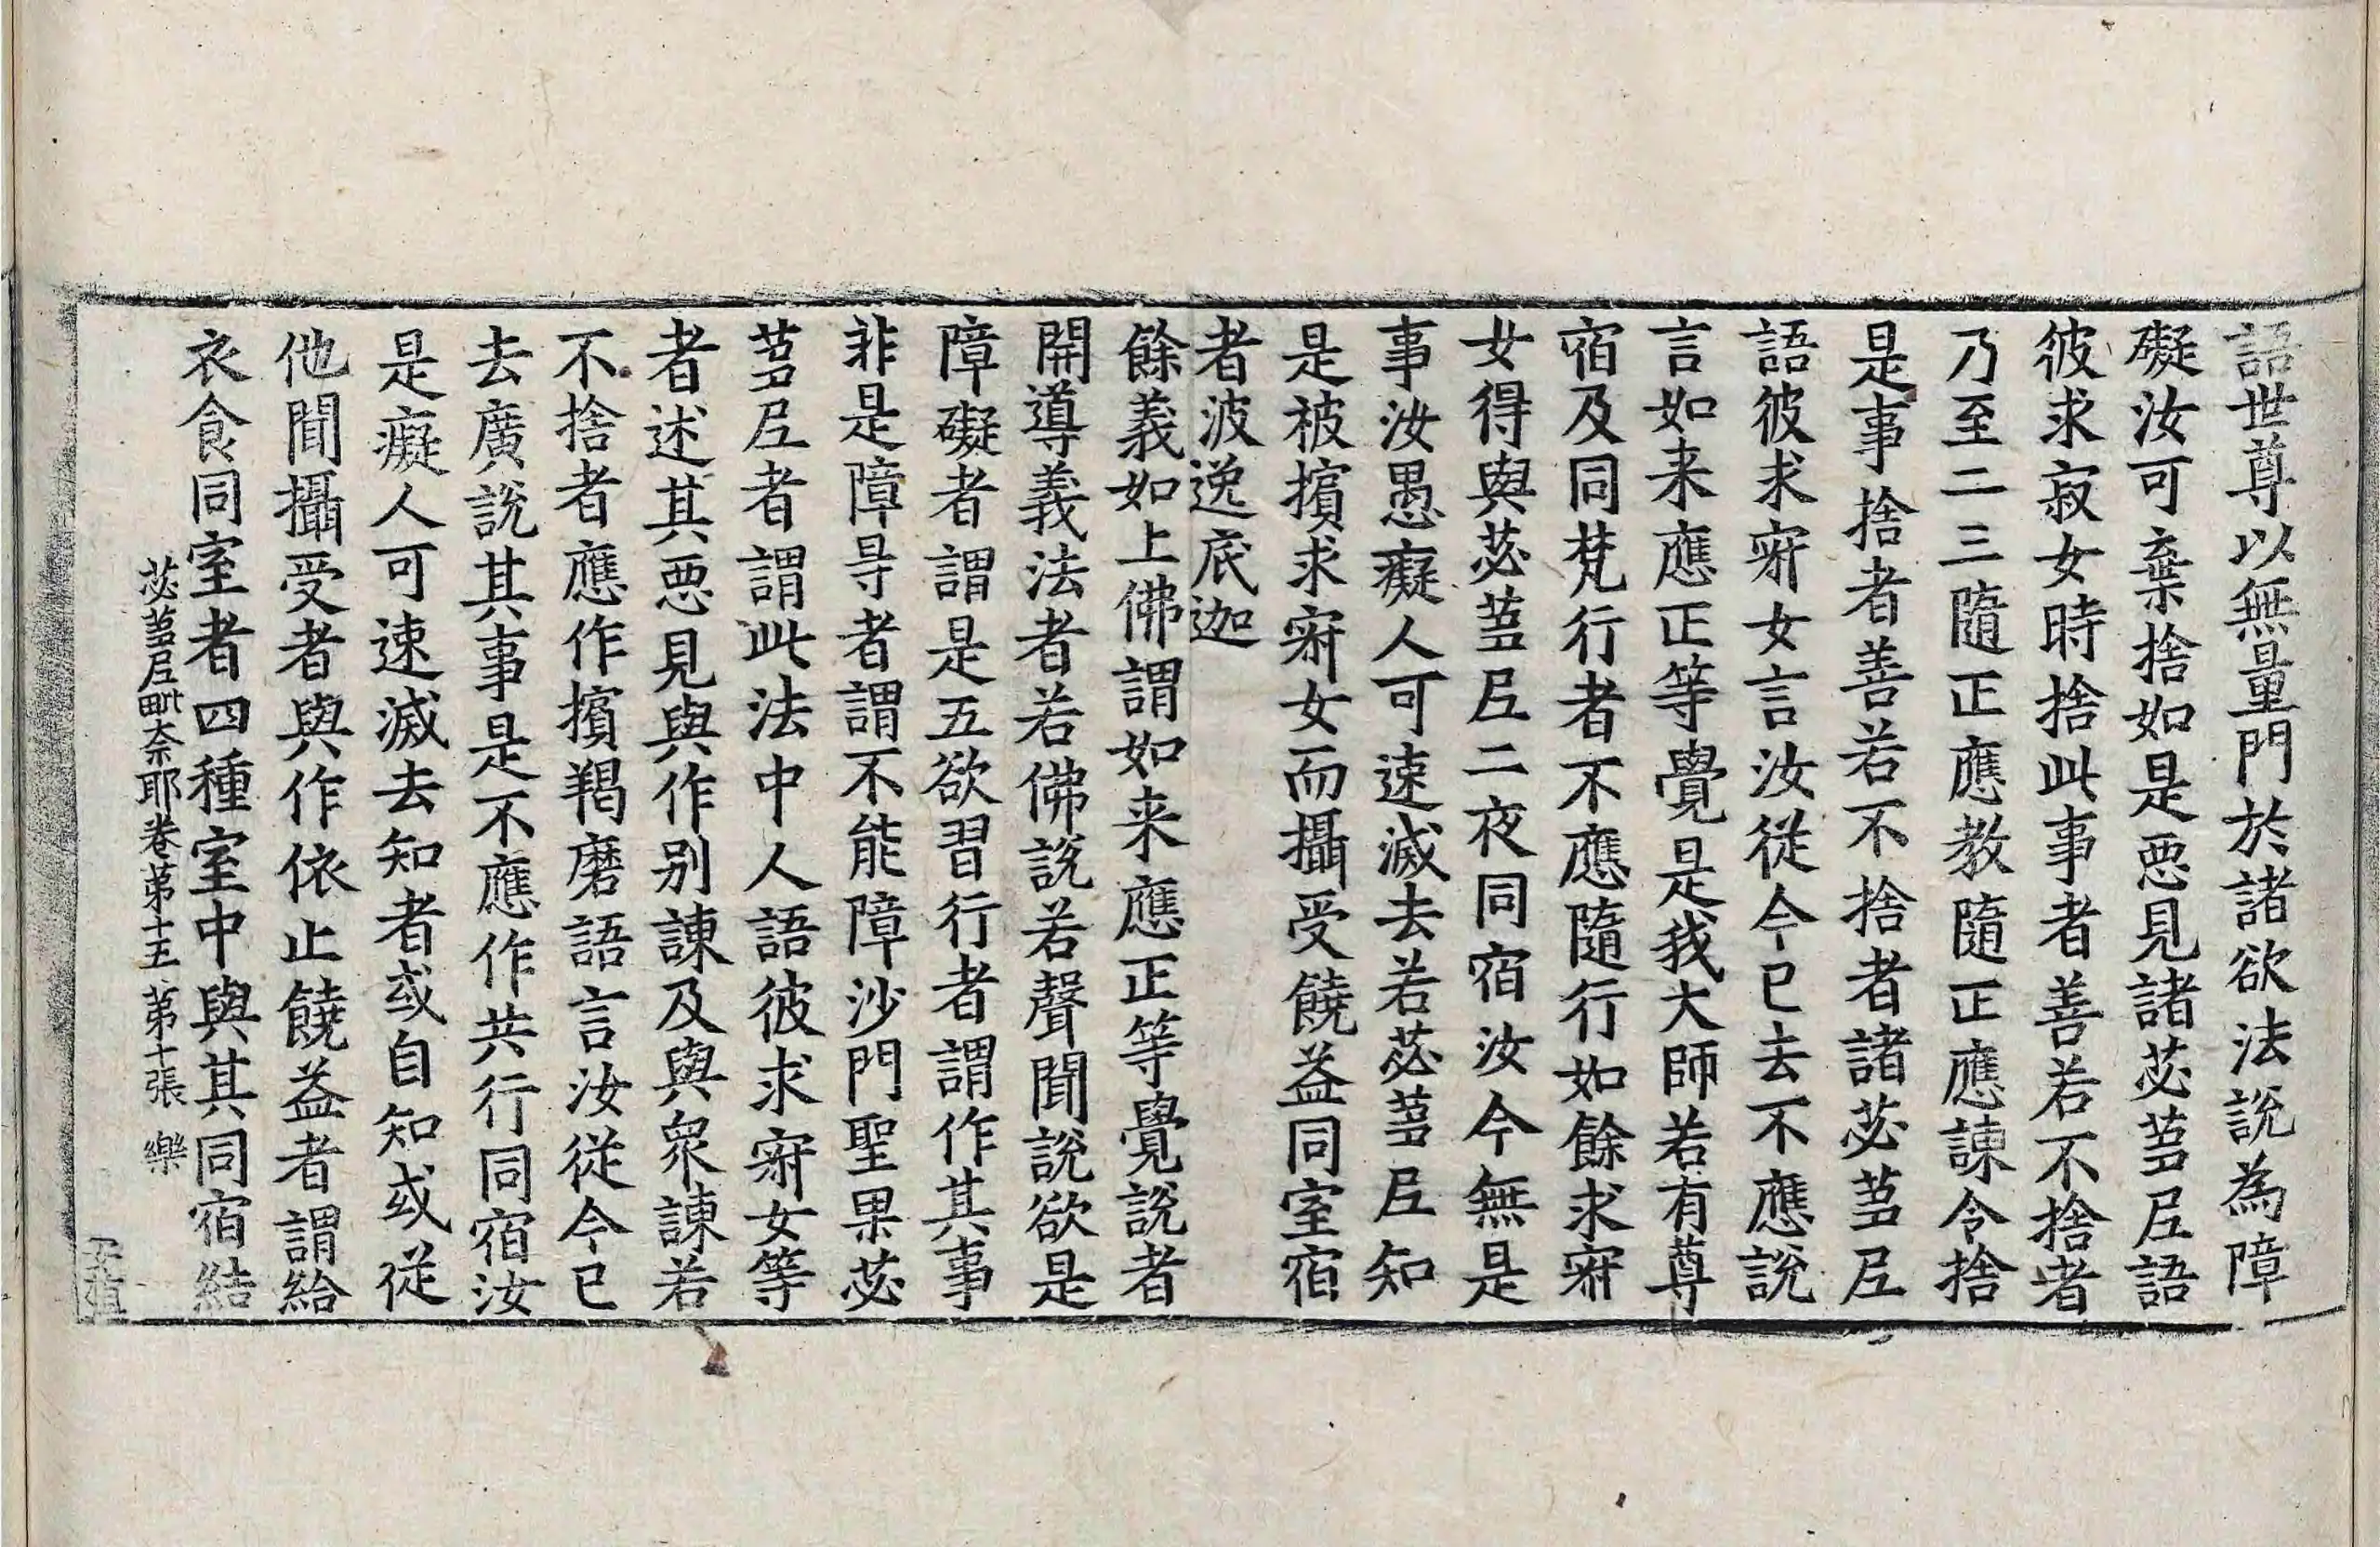 語世尊以無量門於諸欲法說為障
礙汝可棄捨如是惡見諸苾芻尼語
彼求寂女時捨此事者善若不捨者
乃至二三隨正應教隨正應諫令捨
是事捨者善若不捨者諸苾芻尼
語彼求寂女言汝從今已去不應說
言如来應正等覺是我大師若有尊
宿及同梵行者不應隨行如餘求寂
女得與苾芻尼二夜同宿汝今無是
事汝愚癡人可速滅去若苾芻尼知
是被擯求寂女而攝受饒益同室宿
者波逸底迦
餘義如上佛謂如来應正等覺說者
開導義法者若佛說若聲聞說欲是
障礙者謂是五欲習行者謂作其事
非是障㝵者謂不能障沙門聖果苾
芻尼者謂此法中人語彼求寂女等
者述其惡見與作别諫及與衆諫若
不捨者應作擯羯磨語言汝從今已
去廣說其事是不應作共行同宿汝
是癡人可速滅去知者或自知或從
他聞攝受者與作依止饒益者謂給
衣食同室者四種室中與其同宿結
苾芻尼毗奈耶卷第十五 第十張 樂